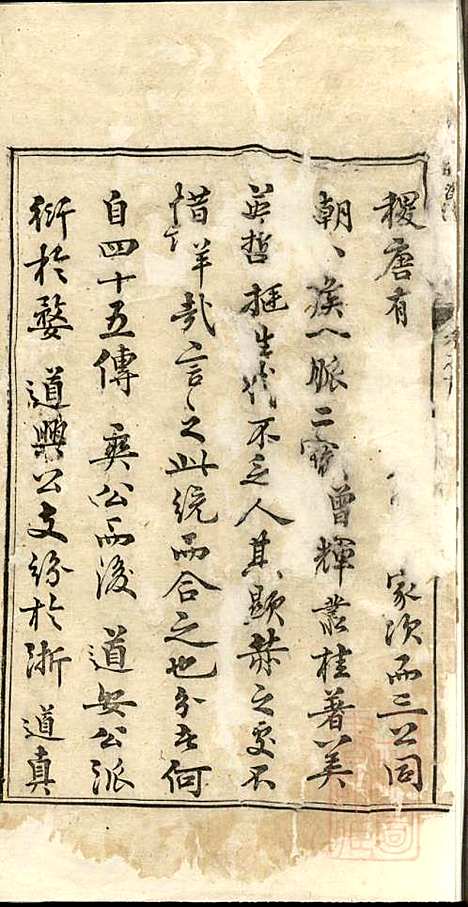 稷唐有家次而三公同
朝族脈二曾輝叢桂著美
英哲挺生代不乏人其顯榮之更不
惜詳哉言之此統而合之也分者何
自四十五傳奕公而後道安公派
衍於婺道興公支紛於浙道真